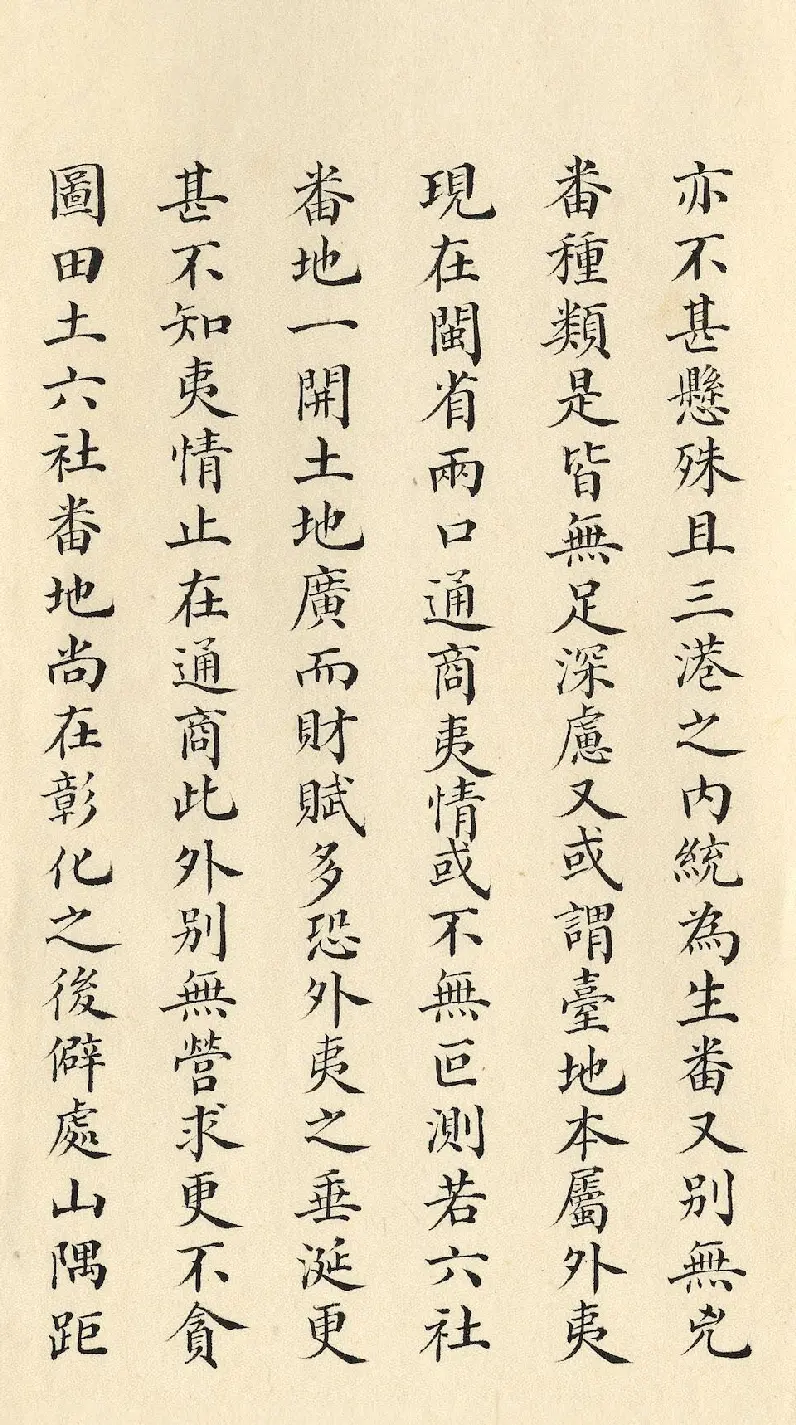 亦不甚懸殊且三港之内統為生番又别無兇
番種類是皆無足深慮又或謂臺地本屬外夷
現在閩省兩口通商夷情或不無叵測若六社
番地一開土地廣而財賦多恐外夷之垂涎更
甚不知夷情止在通商此外别無營求更不貪
圖田土六社番地尚在彰化之後僻處山隅距